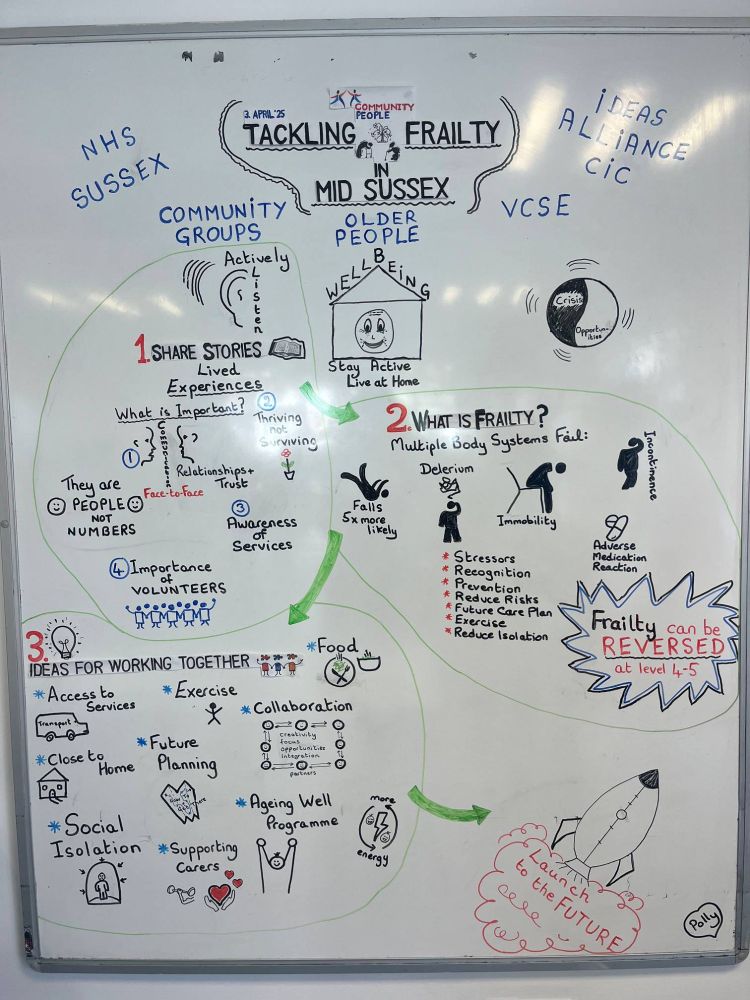 3. APRIL '25
COMMUNITY
PEOPLE
TACKLING FRAILTY
IN
MID SUSSEX
NHS
SUSSEX
IDEAS
ALLIANCE
CIC
COMMUNITY
GROUPS
OLDER
PEOPLE
VCSE
Actively
Listen
WELLBEING
Stay Active
Live at Home
Crisis
Opportun-
ities
1. SHARE STORIES
Lived
Experiences
What is Important?
1
Communication
Face-to-Face
Relationships +
Trust
2
Thriving
not
Surviving
They are
PEOPLE
NOT
NUMBERS
3
Awareness
of
Services
4 Importance
of
VOLUNTEERS
2. WHAT IS FRAILTY?
Multiple Body Systems Fail:
Falls
5x more
likely
Delerium
Immobility
Incontinence
Adverse
Medication
Reaction
* Stressors
* Recognition
* Prevention
* Reduce Risks
* Future Care Plan
* Exercise
* Reduce Isolation
Frailty can be
REVERSED
at level 4-5
3. IDEAS FOR WORKING TOGETHER
* Food
* Access to
Services
Transport
* Exercise
* Collaboration
creativity
focus
opportunities
integration
partners
* Close to
Home
* Future
Planning
* Social
Isolation
* Supporting
Carers
* Ageing Well
Programme
more
energy
Launch
to the FUTURE
Polly